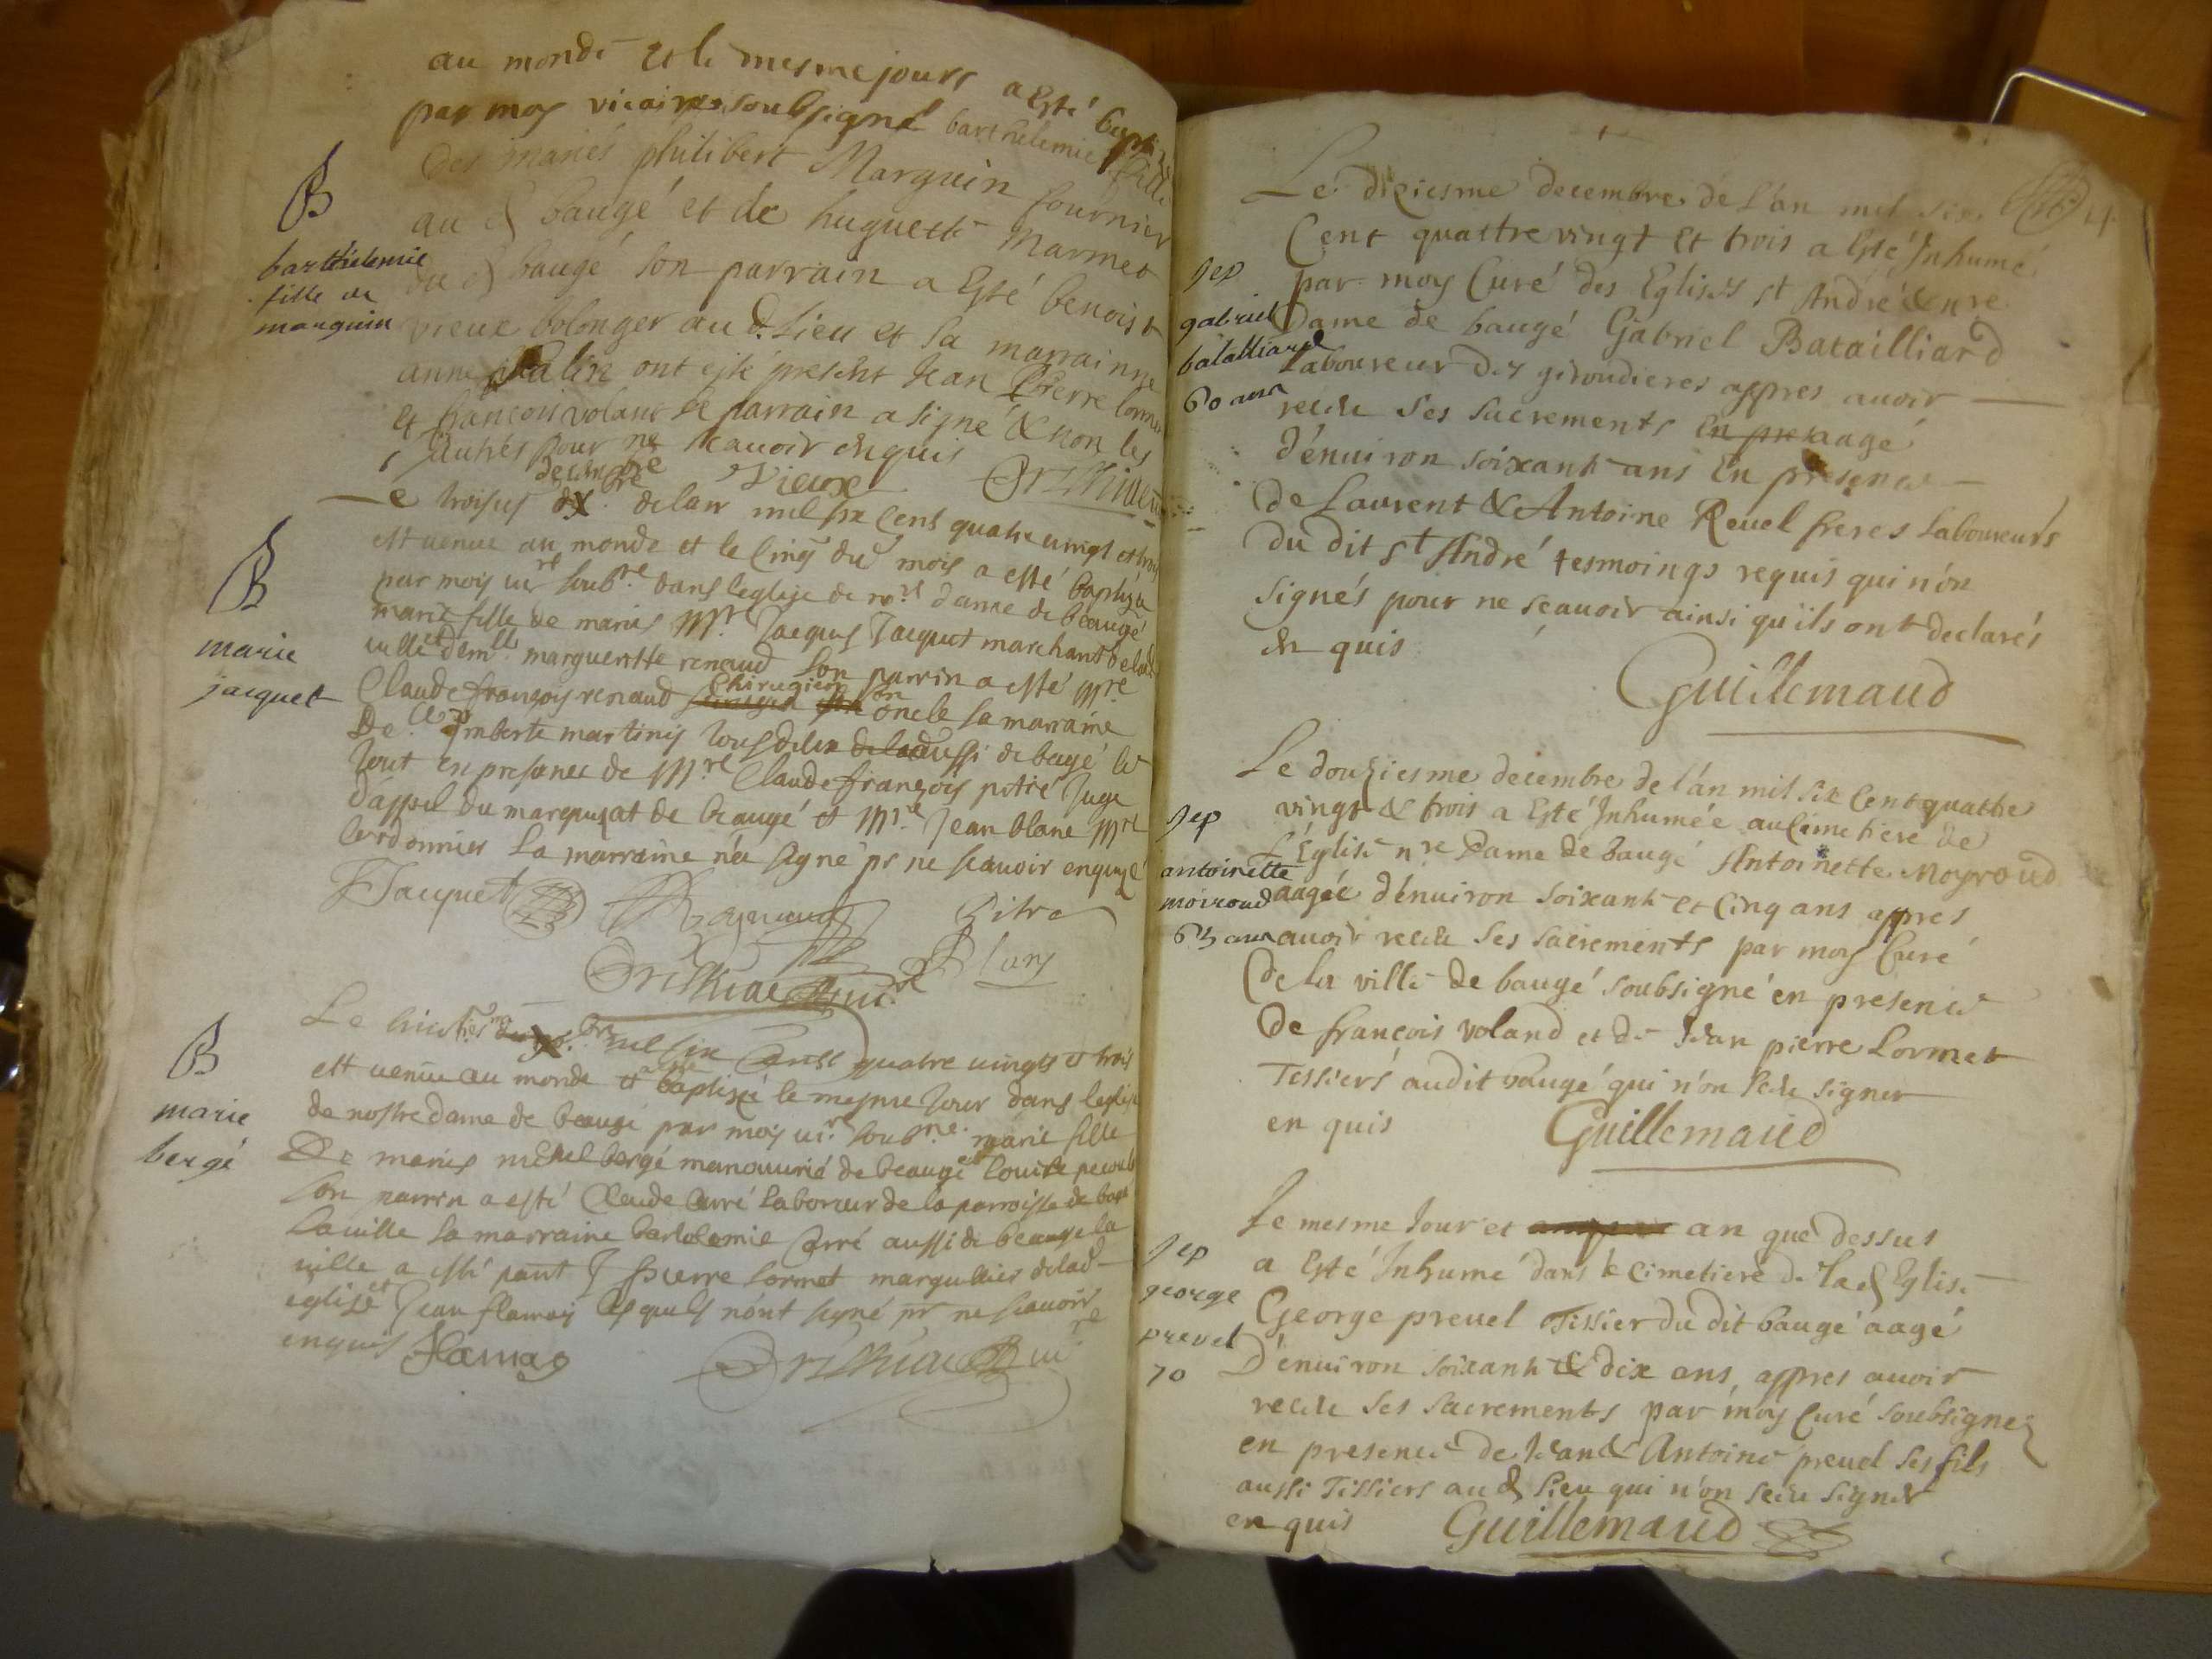 au monde et le mesme jours a Esté baptizé
par moy vicaire soubsigné barthelemie fille
des mariés philibert Marguin fournier
au d baugé et de huguette Marmet
du d baugé son parrain a Esté benoist
vieux bolonger au d. Lieu et sa marrainne
anne ont esté present Jean Pierre lormet
et francois voland le parrain a signé & non les
autres pour ne scavoir enquis
Vieux
B
barthelemie
fille de
marguin
Le troisies decembre de lan mil six cent quatre vingt et trois
est venue au monde et le cinq du mois a esté baptizée
par mois vire soubne dans leglize de nore dame de beaugé
marie fille de mariés Mr Jacques Jacquet marchant de lad
ville et demlle margueritte renaud son parrin a esté Mre
Claude françois renaud chirugien son oncle sa marraine
Delle imberte martinis tous deux aussi de bagé le
tout en presence de Mre Claude françois pitré Juge
dappel du marquizat de beaugé et Mre Jean blanc Mre
cordonnier La marraine n'a signé pr ne scavoir enquize
B
marie
jacquet
Jacquet
Pitre
Blanc
Le mil six cents quatre vingts et trois
est venue au monde et a esté baptizé le mesme Jour dans leglize
de nostre dame de beaugé par mois vire soubne marie fille
De mariés michel bergé manouvrié de beaugé et louise
son parrin a esté Claude Carré laboreur de la parroisse de bagé
la ville la marraine bartolomie Carré aussi de beauge la
ville a esté pnt J Pierre Lormet margullier de lad
eglize et Jean flamay lesquels n'ont signé pr ne scavoir
enquis Flamay
B
marie
bergé
4
Le diziesme decembre de l'an mil six
Cent quattre vingt et trois a Esté Inhumé
par moy Curé des Eglises st André & nre
Dame de baugé Gabriel Batailliard
Laboureur des giroudieres appres avoir
receu ses sacrements en pres aagé
d'énuiron soixante ans En presence
de Laurent & Antoine Reuel freres Laboureurs
du dit st André tesmoings requis qui n'on
signés pour ne sçauoir ainsi qu'ils ont declarés
en quis
Guillemaud
sep
gabriel
batailliard
60 ans
Le douziesme decembre de l'an mil six Cent quattre
vingt & trois a Esté Inhumée au cimetiere de
l'Eglise nre Dame de baugé Antoinette Moyroud
aagée d'énuiron soixante et cinq ans appres
avoir receu ses sacrements par moy Curé
de la ville de baugé soubsigné en presence
de françois voland et de Jean pierre Lormet
Tissiers audit baugé qui n'on sceu signer
en quis Guillemaud
sep
antoinette
moiroud
65 ans
Le mesme Jour et an que dessus
a Esté Inhumé dans le cimetiere de la d Eglise
George preuel Tissier du dit baugé aagé
D'énuiron soixante & dix ans appres avoir
receu ses sacrements par moy Curé soubsigné
en presence de Jean & Antoine preuel ses fils
aussi Tissiers au d Lieu qui n'on sceu signer
en quis Guillemaud
sep
george
prevel
70